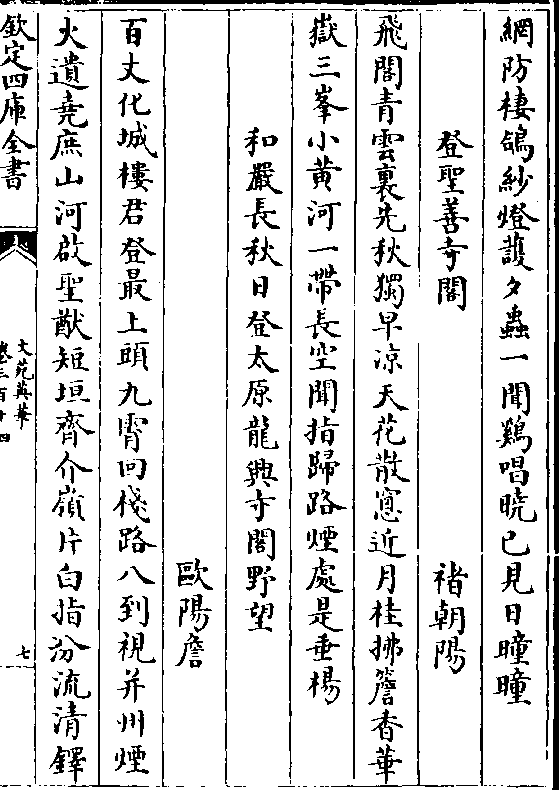 網防棲鴿紗燈護夕蟲一聞鷄唱曉已見日曈曈
登聖善寺閣 褚朝陽
飛閣青雲裏先秋獨早涼天花散窻近月桂拂簷香華
嶽三峯小黄河一帶長空聞指歸路煙處是垂楊
和嚴長秋日登太原龍興寺閣野望
歐陽詹
百丈化城樓君登最上頭九霄回棧路八到視并州煙
火遺堯庶山河啟聖猷短垣齊介嶺片白指汾流清鐸
欽定四庫全書
文苑英華
卷三百十四
七